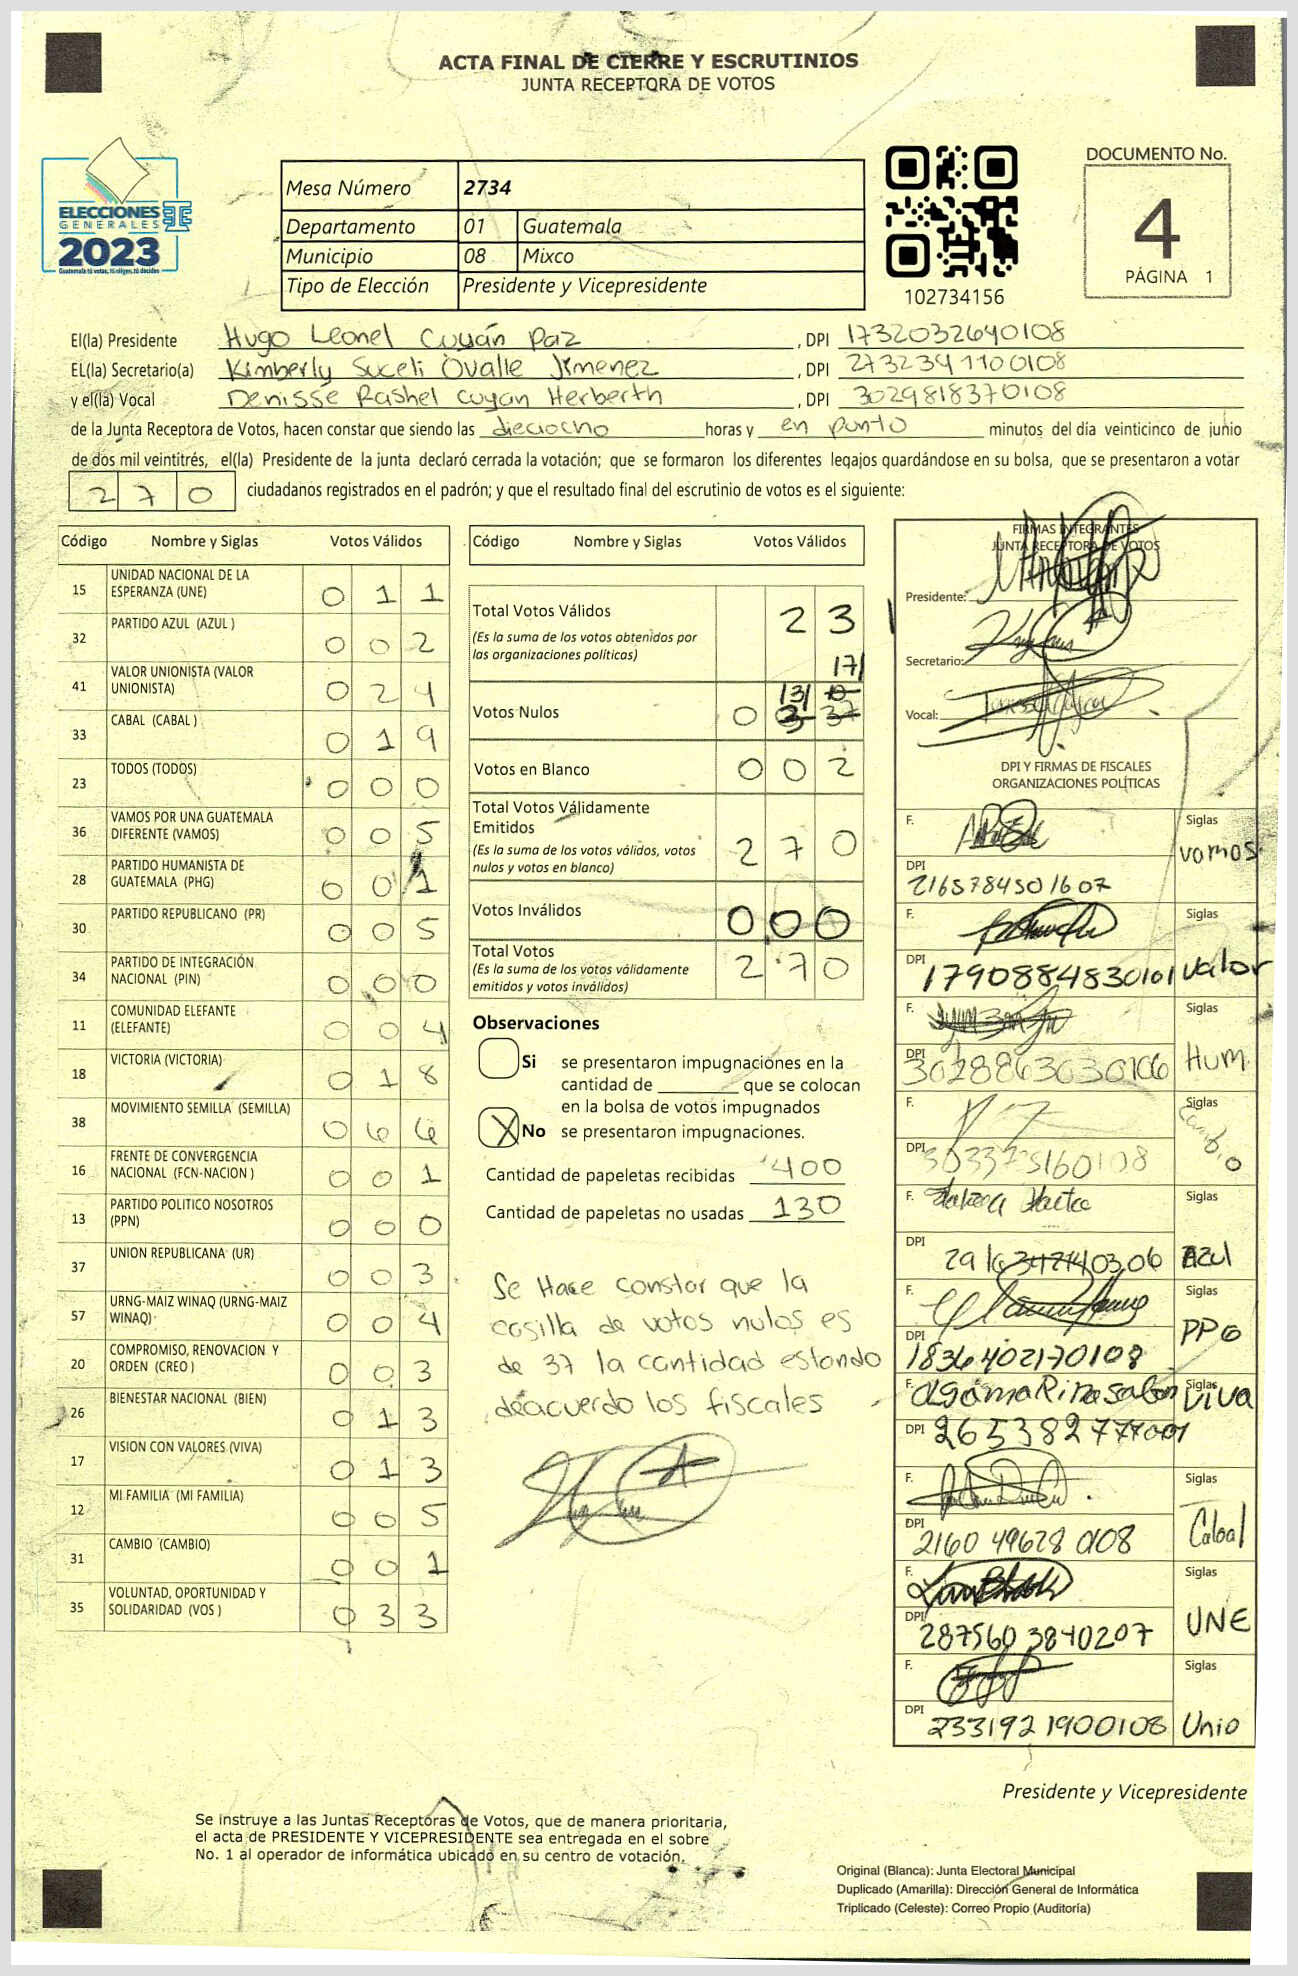 ACTA FINAL DE CIERRE Y ESCRUTINIOS
JUNTA RECEPTORA DE VOTOS
ELECCIONES
GENERALES
2023
Guatemala tú votas, tú eliges, tú decides
Mesa Número 2734
Departamento 01 Guatemala
Municipio 08 Mixco
Tipo de Elección Presidente y Vicepresidente
102734156
DOCUMENTO No.
4
PÁGINA 1
El(la) Presidente Hugo Leonel Cuyán Paz, DPI 1732032640108
EL(la) Secretario(a) Kimberly Suceli Ovalle Jimenez, DPI 2732341100108
y el(la) Vocal Denisse Rashel Cuyan Herberth, DPI 3029818370108
de la Junta Receptora de Votos, hacen constar que siendo las dieciocho horas y en punto minutos del día veinticinco de junio
de dos mil veintitrés, el(la) Presidente de la junta declaró cerrada la votación; que se formaron los diferentes legajos guardándose en su bolsa, que se presentaron a votar
270 ciudadanos registrados en el padrón; y que el resultado final del escrutinio de votos es el siguiente:
Código Nombre y Siglas Votos Válidos
15 UNIDAD NACIONAL DE LA ESPERANZA (UNE) 011
32 PARTIDO AZUL (AZUL ) 002
41 VALOR UNIONISTA (VALOR UNIONISTA) 024
33 CABAL (CABAL ) 019
23 TODOS (TODOS) 000
36 VAMOS POR UNA GUATEMALA DIFERENTE (VAMOS) 005
28 PARTIDO HUMANISTA DE GUATEMALA (PHG) 001
30 PARTIDO REPUBLICANO (PR) 005
34 PARTIDO DE INTEGRACIÓN NACIONAL (PIN) 000
11 COMUNIDAD ELEFANTE (ELEFANTE) 004
18 VICTORIA (VICTORIA) 018
38 MOVIMIENTO SEMILLA (SEMILLA) 066
16 FRENTE DE CONVERGENCIA NACIONAL (FCN-NACION ) 001
13 PARTIDO POLITICO NOSOTROS (PPN) 000
37 UNION REPUBLICANA (UR) 003
57 URNG-MAIZ WINAQ (URNG-MAIZ WINAQ) 004
20 COMPROMISO, RENOVACION Y ORDEN (CREO ) 003
26 BIENESTAR NACIONAL (BIEN) 013
17 VISION CON VALORES (VIVA) 013
12 MI FAMILIA (MI FAMILIA) 005
31 CAMBIO (CAMBIO) 001
35 VOLUNTAD, OPORTUNIDAD Y SOLIDARIDAD (VOS ) 033
Código Nombre y Siglas Votos Válidos
Total Votos Válidos 231
(Es la suma de los votos obtenidos por
las organizaciones políticas)
Votos Nulos 0 37
Votos en Blanco 002
Total Votos Válidamente
Emitidos 270
(Es la suma de los votos válidos, votos
nulos y votos en blanco)
Votos Inválidos 000
Total Votos 270
(Es la suma de los votos válidamente
emitidos y votos inválidos)
Observaciones
Si se presentaron impugnaciones en la
cantidad de ________ que se colocan
en la bolsa de votos impugnados
X No se presentaron impugnaciones.
Cantidad de papeletas recibidas 400
Cantidad de papeletas no usadas 130
Se Hace constar que la
casilla de votos nulos es
de 37 la cantidad estando
deacuerdo los fiscales
FIRMAS INTEGRANTES
JUNTA RECEPTORA DE VOTOS
Presidente:
Secretario:
Vocal:
DPI Y FIRMAS DE FISCALES
ORGANIZACIONES POLÍTICAS
F. Siglas vamos
DPI 2165784501607
F. Siglas Valor
DPI 1790884830101
F. Siglas Hum
DPI 3028863030106
F. Siglas Cambio
DPI 3033773160108
F. Siglas Azul
DPI
F. Siglas PPG
DPI 1836402170108
F. Siglas Viva
DPI
F. Siglas Cabal
DPI 2160 49628 0108
F. Siglas UNE
DPI 287560 3840207
F. Siglas Unio
DPI 233192 1900108
Presidente y Vicepresidente
Se instruye a las Juntas Receptoras de Votos, que de manera prioritaria,
el acta de PRESIDENTE Y VICEPRESIDENTE sea entregada en el sobre
No. 1 al operador de informática ubicado en su centro de votación.
Original (Blanca): Junta Electoral Municipal
Duplicado (Amarilla): Dirección General de Informática
Triplicado (Celeste): Correo Propio (Auditoría)